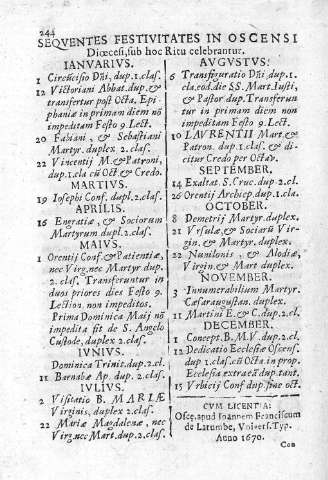 244
SEQVENTES FESTIVITATES IN OSCENSI
Diœcesi, sub hoc Ritu celebrantur.
IANVARIVS.
1 Circũcisio Dñi, dup. 1. clas.
12 Victoriani Abbat. dup. &
transfertur post Octa. Epi-
phaniæ in primam diem nõ
impeditam Festo 9. Lect.
20 Fabiani, & Sebastiani
Martyr. duplex 2. clas.
22 Vincentij M. & Patroni,
dup. 1. cla cũ Oct & Credo.
MARTIVS.
19 Iosephi Conf. dupl. 2. clas.
APRILIS.
16 Engratiæ, & Sociorum
Martyrum dupl. 2. clas.
MAIVS.
1 Orentij Conf. & Patientiæ,
nec Virg. nec Martyr dup.
2. clas. Transferuntur in
duos priores dies Festo 9.
Lectiõn. non impeditos.
Prima Dominica Maij nõ
impedita fit de S. Angelo
Custode, duplex 2. clas.
IVNIVS.
Dominica Trinit. dup. 2. cl.
11 Barnabæ Ap. dup. 2. clas.
IVLIVS.
2 Visitatio B. MARIÆ
Virginis, duplex 2. clas.
22 Mariæ Magdalenæ, nec
Virg. nec Mart. dup. 2. cl.
AVGVSTVS.
6 Transfiguratio Dñi, dup. 1.
cla. eod. die SS. Mart. Iusti,
& Pastor dup. Transferun
tur in primam diem non
impeditam Festo 9. Lect.
10 LAVRENTII Mart. &
Patron. dup. 1. clas. & di-
citur Credo per Octav.
SEPTEMBER.
14 Exaltat. S. Cruc. dup. 2. cl.
26 Orentij Archiep. dup. 1. cla.
OCTOBER.
8 Demetrij Martyr. duplex.
21 Vrsulæ, & Sociarũ Vir-
gin. & Martyr. duplex.
22 Nunilonis, & Alodiæ,
Virgin. & Mart. duplex.
NOVEMBER.
3 Innumerabilium Martyr.
Cæsaraugustan. duplex.
11 Martini E. & C. dup. 2. cl.
DECEMBER.
1 Concept. B. M. V. dup. 2. cl.
12 Dedicatio Ecclesiæ Oscens.
dup. 1. clas. cũ Octa in prop.
Ecclesia extra eã dup. tant.
15 Vrbicij Conf dup. sine oct.
CVM LICENTIA:
Oscę, apud Ioannem Franciscum
de Larumbe, Univers. Typ.
Anno 1670.
Com